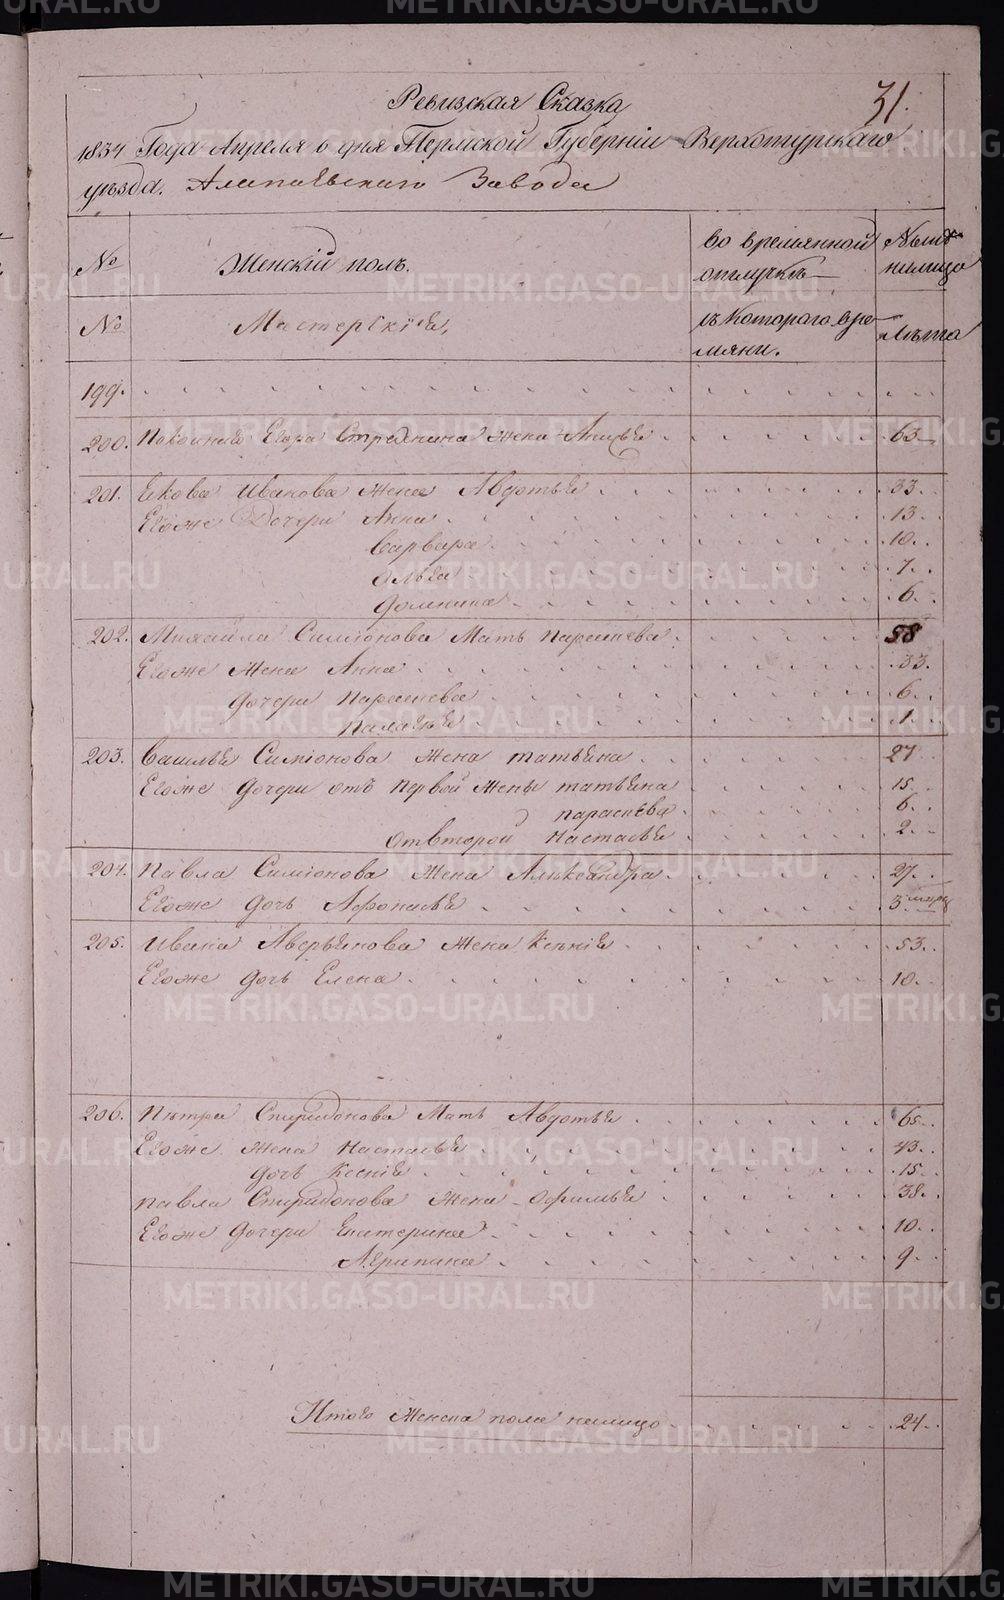 31.
Ревизская Сказка
1834 Года Апреля 6 дня Пермской Губерніи Верхотурскаго
уѣзда. Алапаевскаго Завода
№ Женскій полъ. во времянной отлучкѣ Нынѣ налицо
№ Мастерскіе, съ Котораго времяни. Лѣта
199.
200. Покойнаго Егора Стрежнина жена 63
201. Якова Иванова жена Авдотья 33
Егоже Дочери Анна 13
Варвара 10
7
Домнина 6
202. Михайла Симіонова Мать Парасковья 58
Егоже жена Анна 33
дочери Парасковья 6
Палагея 1
203. Василья Симіонова жена татьяна 27
Егоже дочери отъ первой жены татьяна 15
парасковья 6
отвторой Настасья 2
204. Павла Симіонова жена Александра 27
Егоже дочь Афонасья 3
205. Ивана Аверьянова жена Ксенія 53
Егоже дочь Елена 10
206. Петра Спиридонова Мать Авдотья 65
Егоже жена Настасья 43
дочь Ксенія 15
Павла Спиридонова жена Офимья 38
Егоже дочери Екатерина 10
Агрипина 9
Итого женска пола налицо 24
METRIKI.GASO-URAL.RU